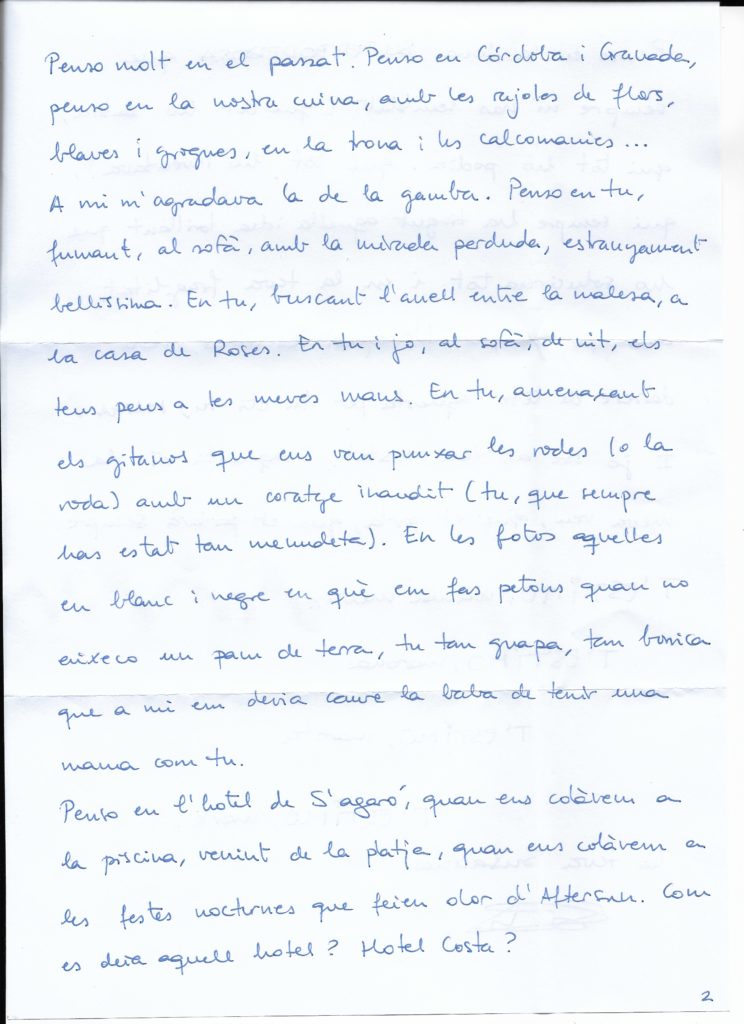 Penso molt en el passat. Penso en Córdoba i Granada,
penso en la nostra cuina, amb les rajoles de flors,
blaves i grogues, en la trona i les calcomanies...
A mi m'agradava la de la gamba. Penso en tu,
fumant, al sofà, amb la mirada perduda, estranyament
bellíssima. En tu, buscant l'anell entre la malesa, a
la casa de Roses. En tu i jo, al sofà, de nit, els
teus peus a les meves mans. En tu, amenaçant
els gitanos que ens van punxar les rodes (o la
roda) amb un coratge inaudit (tu, que sempre
has estat tan menudeta). En les fotos aquelles
en blanc i negre en què em fas petons quan no
aixeco un pam de terra, tu tan guapa, tan bonica
que a mi em devia caure la baba de tenir una
mama com tu.
Penso en l'hotel de S'agaró, quan ens colàvem a
la piscina, venint de la platja, quan ens colàvem a
les festes nocturnes que feien olor d'Aftersun. Com
es deia aquell hotel? Hotel Costa?
2